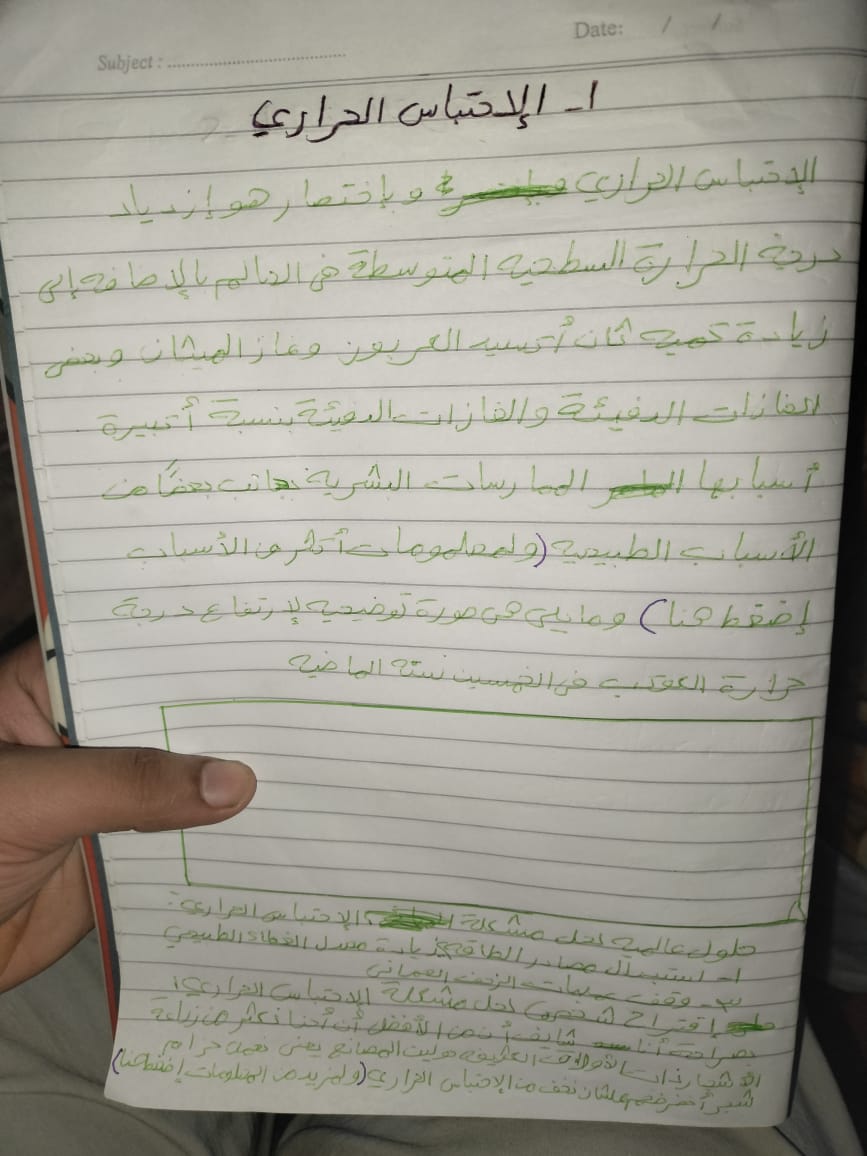 Date: / /
Subject :
١- الإحتباس الحراري
الإحتباس الحراري وبإختصار هو إزدياد
درجة الحرارة السطحيه المتوسطة في العالم بالإضافه إلى
زيادة كميه ثان أكسيد الكربون وغاز الميثان وبعض
الغازات الدفيئة والغازات الدفيئة بنسبة أكبيرة
أسبابها الممارسات البشرية بجانب بعضًا من
الأسباب الطبيعيه (ولمعلومات أكثر عن الأسباب
إضغط هنا) وما يلي هي صورة توضيحيه لإرتفاع درجة
حرارة الكوكب في الخمسين سنه الماضيه
حلول عالميه لحل مشكلة الإحتباس الحراري:
١- إستبدال مصادر الطاقه زيادة معدل الغطاء الطبيعي
٣- وقف عمليات الزحف العمراني
إقتراح شخصي لحل مشكلة الإحتباس الحراري:
بصراحة أنا شايف أن من الأفضل أن أحنا نكثر من زراعة
الأشجار ذات الأوراق العريضه حوالين المصانع يعني نعمل حزام
شجر أخضر ضخم علشان نخفف من الإحتباس الحراري (ولمزيد من المعلومات إضغط هنا)